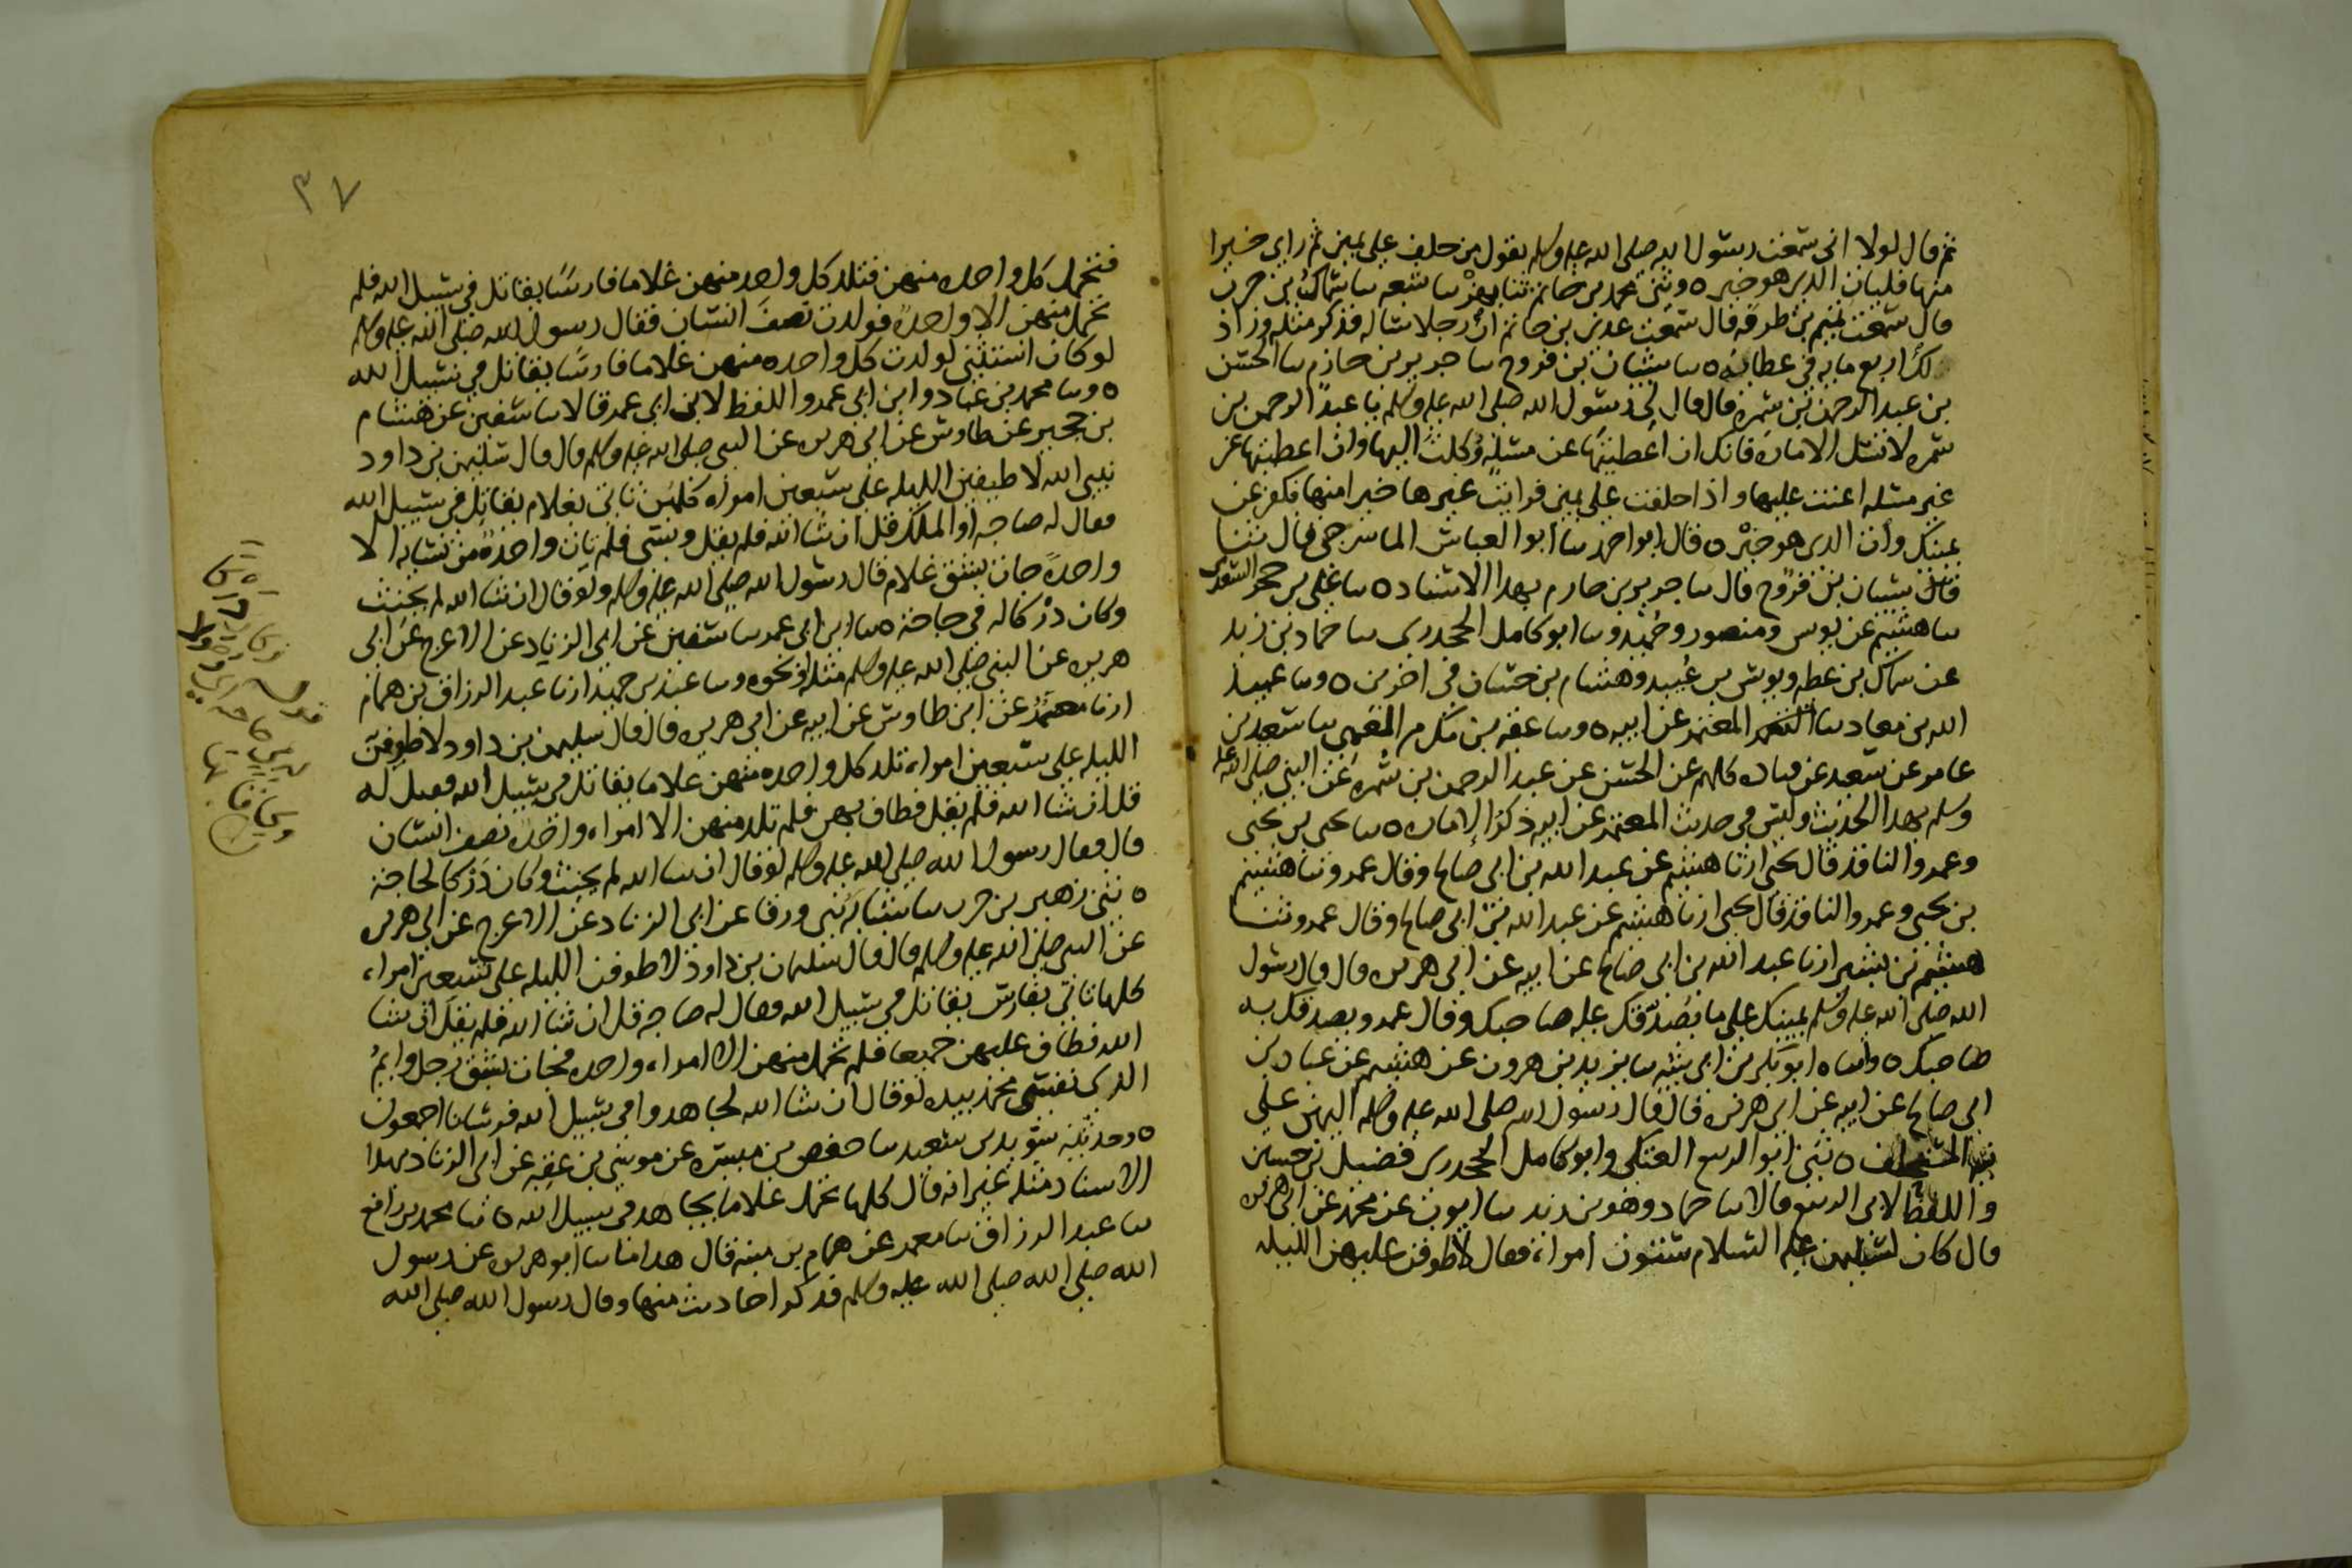 ثم قال لولا انى سمعت رسول الله صلى الله عليه وسلم يقول من حلف على يمين ثم راى خيرا
منها فليات الذى هو خير ٥ وثنى محمد بن حاتم ثنا بهز ثنا شعبه ثنا سماك بن حرب
قال سمعت تميم بن طرفه قال سمعت عدى بن حاتم ان رجلا ساله فذكر مثله وزاد
لك اربع مايه فى عطائه ٥ ثنا شيبان بن فروخ ثنا جرير بن حازم ثنا الحسن
بن عبد الرحمن بن سمره قال قال لى رسول الله صلى الله عليه وسلم يا عبد الرحمن بن
سمره لا تسئل الاماره فانك ان اعطيتها عن مسئله وكلت اليها وان اعطيتها عن
غير مسئله اعنت عليها واذا حلفت على يمين فرايت غيرها خيرا منها فكفر عن
يمينك وات الذى هو خير ٥ قال ابو احمد ثنا ابو العباس الماسرجى قال ثنا
شيبان بن فروخ قال ثنا جرير بن حازم بهذا الاسناد ٥ ثنا على بن حجر السعدى
ثنا هشيم عن يونس ومنصور وحميد وثنا ابو كامل الجحدرى ثنا حماد بن زيد
عن سماك بن عطيه ويونس بن عبيد وهشام بن حسان فى اخرين ٥ وثنا عبيد
الله بن معاد ثنا المعتمر عن ابيه ٥ وثنا عقبه بن مكرم العمى ثنا سعيد بن
عامر عن سعيد عن قتاده كلهم عن الحسن عن عبد الرحمن بن سمره عن النبى صلى الله عليه
وسلم بهذا الحديث وليس فى حديث المعتمر عن ابيه ذكر الاماره ٥ ثنا يحيى بن يحيى
وعمرو الناقد قال يحيى ارنا هشيم عن عبد الله بن ابى صالح وقال عمرو ثنا هشيم
بن يحيى وعمرو الناقد قال يحيى ارنا هشيم عن عبد الله بن ابى صالح وقال عمرو ثنا
هشيم بن بشير ارنا عبد الله بن ابى صالح عن ابيه عن ابى هريره قال قال رسول
الله صلى الله عليه وسلم يمينك على ما يصدقك عليه صاحبك وقال عمرو يصدقك به
صاحبك ٥ وثناه ابو بكر بن ابى شيبه ثنا يزيد بن هرون عن هشيم عن عباد بن
ابى صالح عن ابيه عن ابى هريره قال قال رسول الله صلى الله عليه وسلم اليمين على
نيه المستحلف ٥ ثنى ابو الربيع العتكى وابو كامل الجحدرى فضيل بن حسين
واللفظ لابى الربيع قالا ثنا حماد وهو بن زيد ثنا ايوب عن محمد عن ابى هريره
قال كان لسليمن عليه السلام ستون امراة فقال لاطوفن عليهن الليله
٣٧
فتحمل كل واحده منهن فتلد كل واحده منهن غلاما فارسا يقاتل فى سبيل الله فلم
تحمل منهن الا واحدة فولدت نصف انسان فقال رسول الله صلى الله عليه وسلم
لو كان استثنى لولدت كل واحده منهن غلاما فارسا يقاتل فى سبيل الله
٥ وثنا محمد بن عباد وابن ابى عمر واللفظ لابن ابى عمر قالا ثنا سفين عن هشام
بن حجير عن طاوس عن ابى هريره عن النبى صلى الله عليه وسلم قال قال سليمن بن داود
نبى الله لاطيفن الليله على سبعين امراه كلهن تاتى بغلام يقاتل فى سبيل الله
فقال له صاحبه او الملك قل ان شا الله فلم يقل ونسى فلم تات واحدة من نسايه الا
واحدة جات بشق غلام قال رسول الله صلى الله عليه وسلم ولو قال ان شا الله لم يحنث
وكان دركا له فى حاجته ٥ ثنا ابن ابى عمر ثنا سفين عن ابى الزناد عن الاعرج عن ابى
هريره عن النبى صلى الله عليه وسلم مثله او نحوه وثنا عبد بن حميد ارنا عبد الرزاق بن همام
ارنا معمر عن ابن طاوس عن ابيه عن ابى هريره قال قال سليمن بن داود لاطوفن
الليله على سبعين امراه تلد كل واحده منهن غلاما يقاتل فى سبيل الله فقيل له
قل ان شا الله فلم يقل فطاف بهن فلم تلد منهن الا امراه واحده نصف انسان
قال فقال رسول الله صلى الله عليه وسلم لو قال ان شا الله لم يحنث وكان دركا لحاجته
٥ ثنى زهير بن حرب ثنا شبابه ثنى ورقا عن ابى الزناد عن الاعرج عن ابى هريره
عن النبى صلى الله عليه وسلم قال قال سليمان بن داود لاطوفن الليله على تسعين امراه
كلها تاتى بفارس يقاتل فى سبيل الله فقال له صاحبه قل ان شا الله فلم يقل ان شا
الله فطاف عليهن جميعا فلم تحمل منهن الا امراه واحده فجات بشق رجل وايم
الذى نفس محمد بيده لو قال ان شا الله لجاهدوا فى سبيل الله فرسانا اجمعون
٥ وحدثنيه سويد بن سعيد ثنا حفص بن ميسره عن موسى بن عقبه عن ابى الزناد بهذا
الاسناد مثله غير انه قال كلها تحمل غلاما يجاهد فى سبيل الله ٥ ثنا محمد بن رافع
ثنا عبد الرزاق ثنا معمر عن همام بن منبه قال هذا ما ثنا ابو هريره عن رسول
الله صلى الله صلى الله عليه وسلم فذكر احاديث منها وقال رسول الله صلى الله